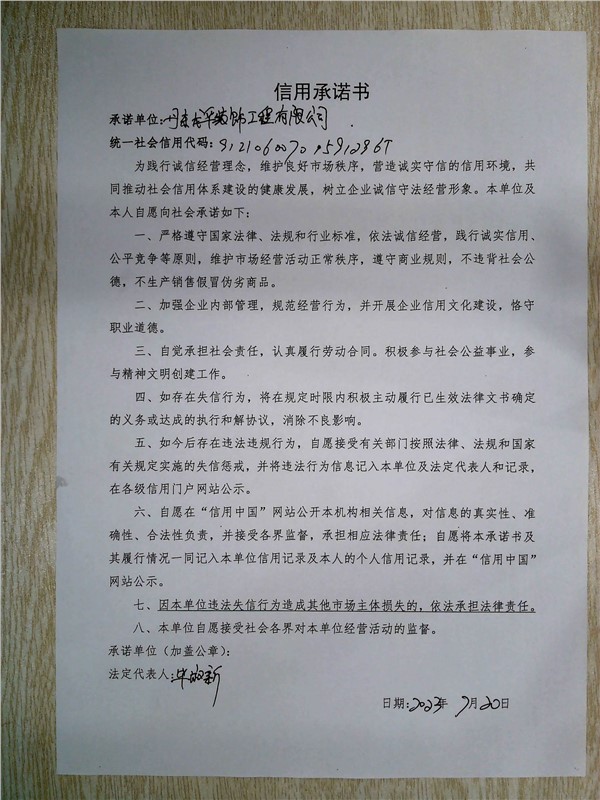 信用承诺书
承诺单位:丹东龙泽装饰工程有限公司
统一社会信用代码:
为践行诚信经营理念，维护良好市场秩序，营造诚实守信的信用环境，共
同推动社会信用体系建设的健康发展，树立企业诚信守法经营形象。本单位及
本人自愿向社会承诺如下：
一、严格遵守国家法律、法规和行业标准，依法诚信经营，践行诚实信用、
公平竞争等原则，维护市场经营活动正常秩序，遵守商业规则，不违背社会公
德，不生产销售假冒伪劣商品。
二、加强企业内部管理，规范经营行为，并开展企业信用文化建设，恪守
职业道德。
三、自觉承担社会责任，认真履行劳动合同。积极参与社会公益事业，参
与精神文明创建工作。
四、如存在失信行为，将在规定时限内积极主动履行已生效法律文书确定
的义务或达成的执行和解协议，消除不良影响。
五、如今后存在违法违规行为，自愿接受有关部门按照法律、法规和国家
有关规定实施的失信惩戒，并将违法行为信息记入本单位及法定代表人和记录，
在各级信用门户网站公示。
六、自愿在“信用中国”网站公开本机构相关信息，对信息的真实性、准
确性、合法性负责，并接受各界监督，承担相应法律责任；自愿将本承诺书及
其履行情况一同记入本单位信用记录及本人的个人信用记录，并在“信用中国”
网站公示。
七、因本单位违法失信行为造成其他市场主体损失的，依法承担法律责任。
八、本单位自愿接受社会各界对本单位经营活动的监督。
承诺单位（加盖公章）：
法定代表人:
日期:2023年 9月20日